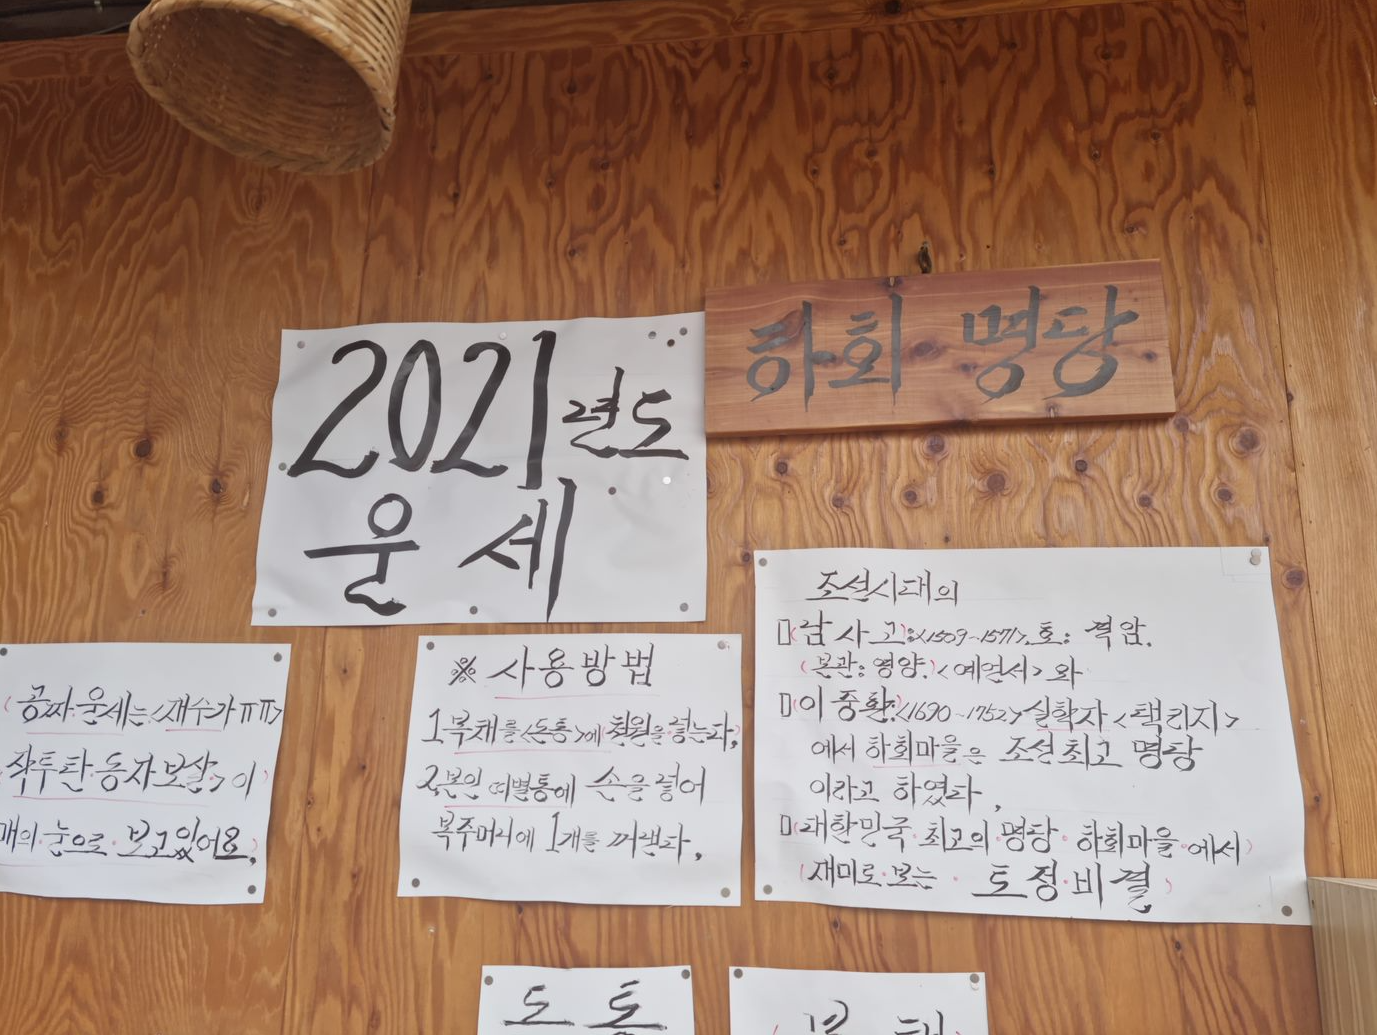 하회 명당
2021년도
운세
(공짜·운세는<재수가 ㅠㅠ>
작투탄·동자보살>이)
매의·눈으로·보고있어요.
※ 사용방법
1.복채를<돈통>에 천원을 넣는다.
2.본인 띠별통에 손을 넣어
복주머니에 1개를 꺼낸다.
조선시대의
(남사고:<1509~1571>.호: 격암.
(본관: 영양.)<예언서> 와
이중환:<1690~1752> 실학자 <택리지>
에서 하회마을은 조선최고 명당
이라고 하였다.
대한민국·최고의·명당·하회마을·에서)
(재미로·보는·토정·비결)
돈통